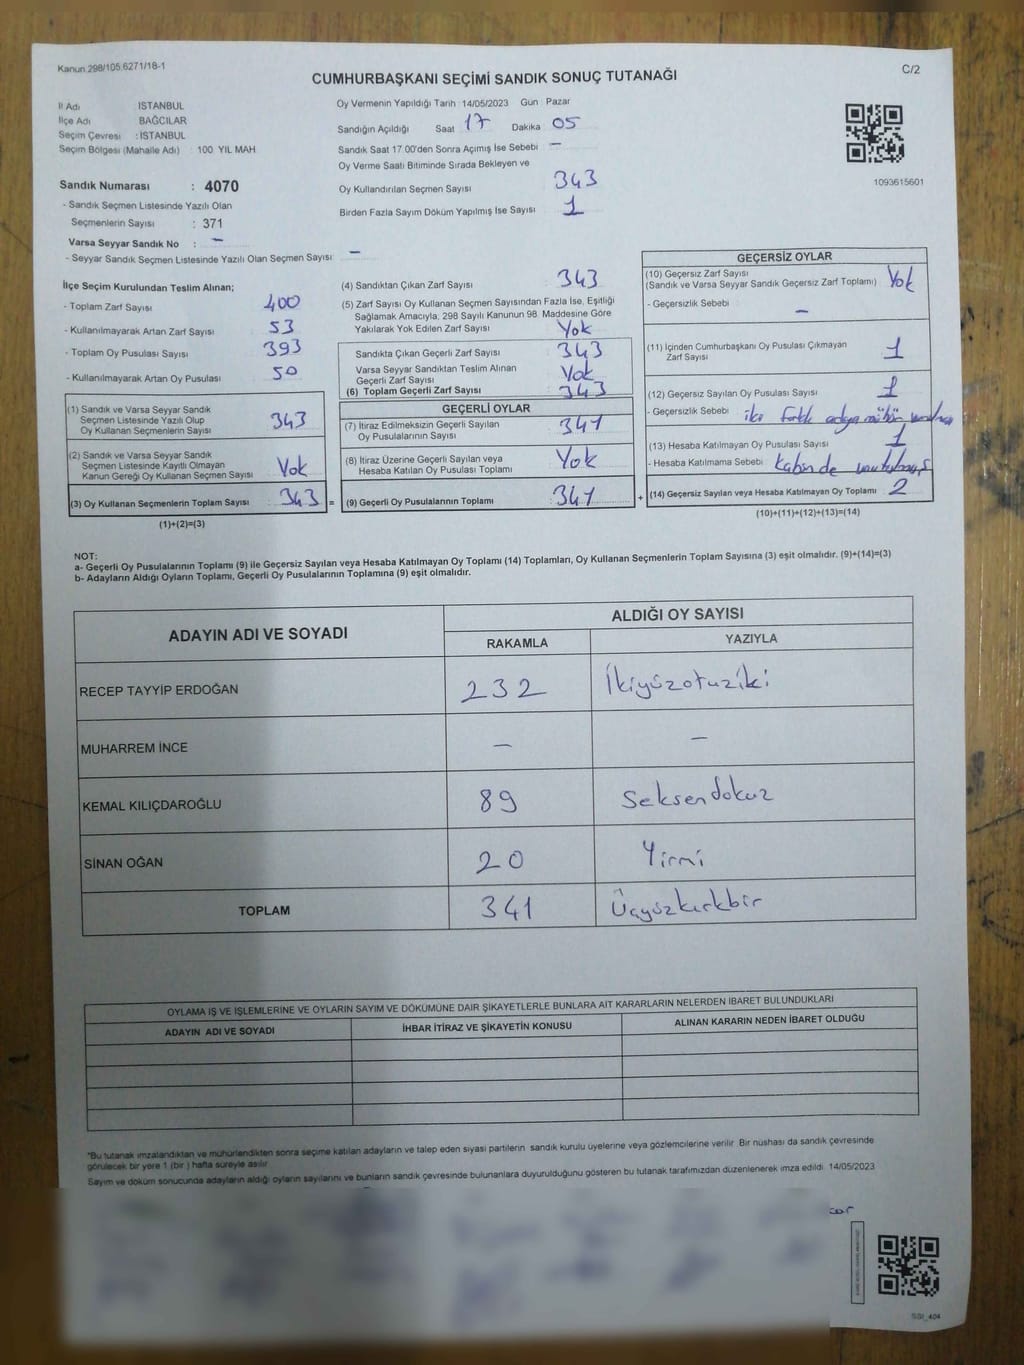 Kanun 298/105.6271/18-1
C/2
CUMHURBAŞKANI SEÇİMİ SANDIK SONUÇ TUTANAĞI
İl Adı İSTANBUL
İlçe Adı BAĞCILAR
Seçim Çevresi : İSTANBUL
Seçim Bölgesi (Mahalle Adı) : 100. YIL MAH
Sandık Numarası : 4070
- Sandık Seçmen Listesinde Yazılı Olan
Seçmenlerin Sayısı : 371
Varsa Seyyar Sandık No : -
- Seyyar Sandık Seçmen Listesinde Yazılı Olan Seçmen Sayısı: -
Oy Vermenin Yapıldığı Tarih : 14/05/2023 Gün : Pazar
Sandığın Açıldığı Saat 17 Dakika 05
Sandık Saat 17.00'den Sonra Açımış İse Sebebi -
Oy Verme Saati Bitiminde Sırada Bekleyen ve
Oy Kullandırılan Seçmen Sayısı 343
Birden Fazla Sayım Döküm Yapılmış İse Sayısı 1
1093615601
İlçe Seçim Kurulundan Teslim Alınan;
- Toplam Zarf Sayısı 400
- Kullanılmayarak Artan Zarf Sayısı 53
- Toplam Oy Pusulası Sayısı 393
- Kullanılmayarak Artan Oy Pusulası 50
(1) Sandık ve Varsa Seyyar Sandık
Seçmen Listesinde Yazılı Olup
Oy Kullanan Seçmenlerin Sayısı 343
(2) Sandık ve Varsa Seyyar Sandık
Seçmen Listesinde Kayıtlı Olmayan
Kanun Gereği Oy Kullanan Seçmen Sayısı Yok
(3) Oy Kullanan Seçmenlerin Toplam Sayısı 343 =
(1)+(2)=(3)
(4) Sandıktan Çıkan Zarf Sayısı 343
(5) Zarf Sayısı Oy Kullanan Seçmen Sayısından Fazla İse, Eşitliği
Sağlamak Amacıyla, 298 Sayılı Kanunun 98. Maddesine Göre
Yakılarak Yok Edilen Zarf Sayısı Yok
Sandıkta Çıkan Geçerli Zarf Sayısı 343
Varsa Seyyar Sandıktan Teslim Alınan
Geçerli Zarf Sayısı Yok
(6) Toplam Geçerli Zarf Sayısı 343
GEÇERLİ OYLAR
(7) İtiraz Edilmeksizin Geçerli Sayılan
Oy Pusulalarının Sayısı 341
(8) İtiraz Üzerine Geçerli Sayılan veya
Hesaba Katılan Oy Pusulası Toplamı Yok
(9) Geçerli Oy Pusulalarının Toplamı 341 +
GEÇERSİZ OYLAR
(10) Geçersiz Zarf Sayısı
(Sandık ve Varsa Seyyar Sandık Geçersiz Zarf Toplamı) Yok
- Geçersizlik Sebebi -
(11) İçinden Cumhurbaşkanı Oy Pusulası Çıkmayan
Zarf Sayısı 1
(12) Geçersiz Sayılan Oy Pusulası Sayısı 1
- Geçersizlik Sebebi iki farklı adaya mühür
(13) Hesaba Katılmayan Oy Pusulası Sayısı 1
- Hesaba Katılmama Sebebi Kabinde unutulmuş
(14) Geçersiz Sayılan veya Hesaba Katılmayan Oy Toplamı 2
(10)+(11)+(12)+(13)=(14)
NOT:
a- Geçerli Oy Pusulalarının Toplamı (9) ile Geçersiz Sayılan veya Hesaba Katılmayan Oy Toplamı (14) Toplamları, Oy Kullanan Seçmenlerin Toplam Sayısına (3) eşit olmalıdır. (9)+(14)=(3)
b- Adayların Aldığı Oyların Toplamı, Geçerli Oy Pusulalarının Toplamına (9) eşit olmalıdır.
ADAYIN ADI VE SOYADI
ALDIĞI OY SAYISI
RAKAMLA YAZIYLA
RECEP TAYYİP ERDOĞAN 232 İkiyüzotuziki
MUHARREM İNCE - -
KEMAL KILIÇDAROĞLU 89 Seksendokuz
SİNAN OĞAN 20 Yirmi
TOPLAM 341 Üçyüzkırkbir
OYLAMA İŞ VE İŞLEMLERİNE VE OYLARIN SAYIM VE DÖKÜMÜNE DAİR ŞİKAYETLERLE BUNLARA AİT KARARLARIN NELERDEN İBARET BULUNDUKLARI
ADAYIN ADI VE SOYADI İHBAR İTİRAZ VE ŞİKAYETİN KONUSU ALINAN KARARIN NEDEN İBARET OLDUĞU
*Bu tutanak imzalandıktan ve mühürlendikten sonra seçime katılan adayların ve talep eden siyasi partilerin sandık kurulu üyelerine veya gözlemcilerine verilir. Bir nüshası da sandık çevresinde
görülecek bir yere 1 (bir) hafta süreyle asılır.
Sayım ve döküm sonucunda adayların aldığı oyların sayılarını ve bunların sandık çevresinde bulunanlara duyurulduğunu gösteren bu tutanak tarafımızdan düzenlenerek imza edildi. 14/05/2023
SSI_404